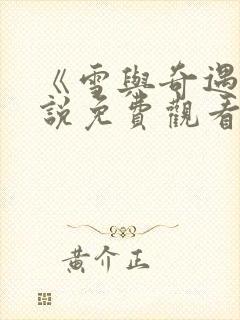 《雪與奇遇
說免費觀看
黃介正